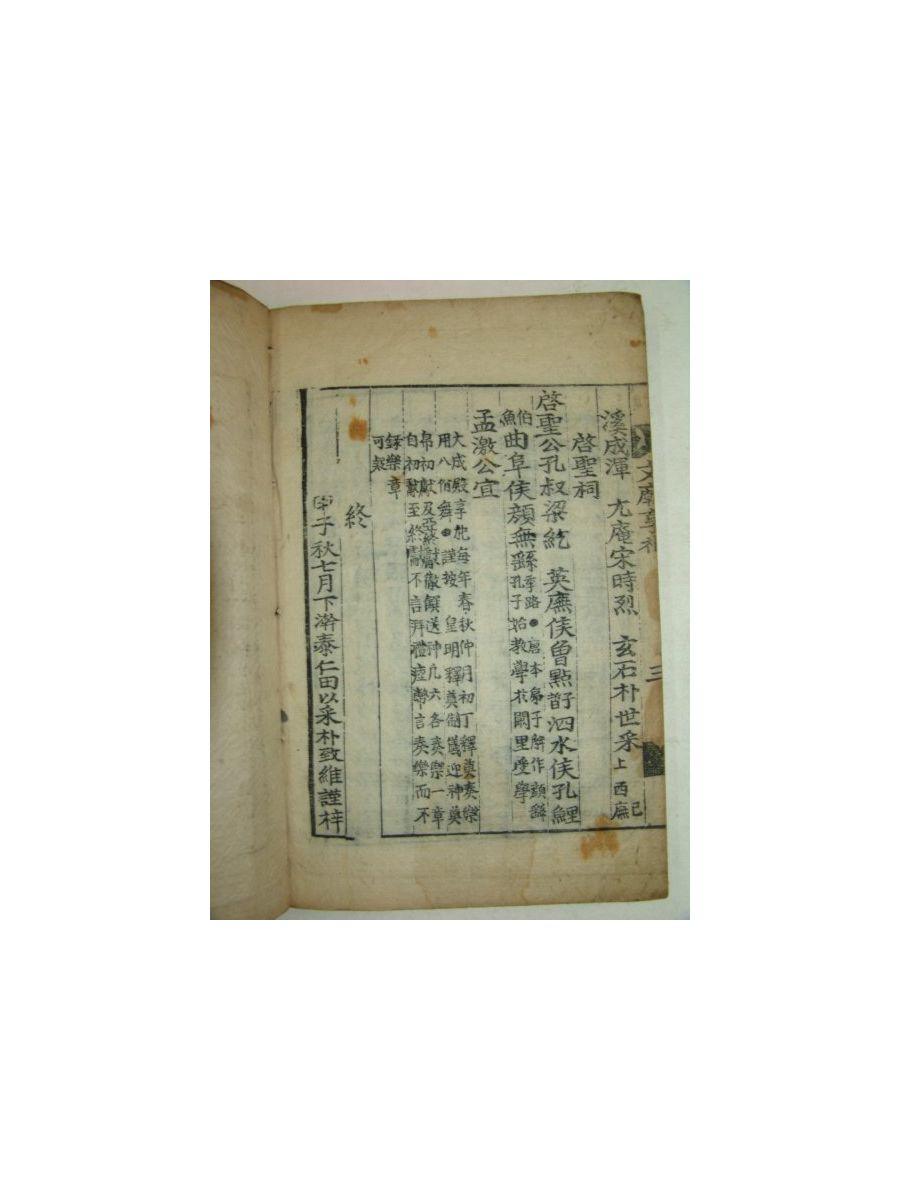 文廟享祀
三
溪成渾 尤庵宋時烈 玄石朴世采 已上西廡
啓聖祠
啓聖公孔叔梁紇 萊蕪侯曾點晳子 泗水侯孔鯉
伯魚 曲阜侯顏無繇季路●唐本弟子解作顏繇孔子始敎學於闕里受學
孟激公宜
大成殿享祀每年春秋仲月初丁釋奠奏樂
用八佾舞●謹按 皇明釋奠制儀迎神奠
帛初獻及亞終獻徹饌送神凡六各奏樂一章
自初獻至終獻不言拜禮瘞幣言奏樂而不
錄樂章
可疑
終
甲子秋七月下澣泰仁田以采朴致維謹梓